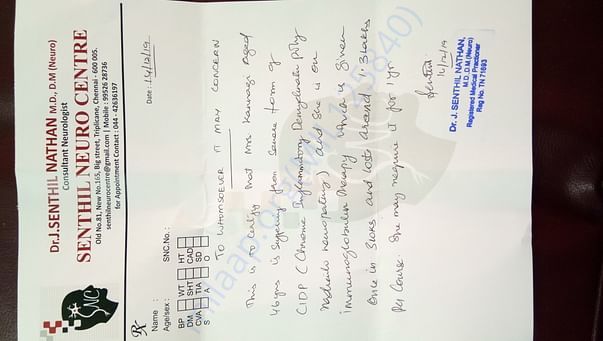 Dr.J.SENTHIL NATHAN M.D., D.M (Neuro)
Consultant Neurologist
SENTHIL NEURO CENTRE
Old No.81, New No.165, Big street, Triplicane, Chennai - 600 005.
senthilneurocentre@gmail.com | Mobile : 99526 28736
for Appointment Contact : 044 - 42636197
SNC
Rx
Name :
Age/sex :
SNC.No.:
Date : 14/12/19
BP WT HT
DM SHT CAD
CVA TIA SD
S A O
TO WHOMSOEVER IT MAY CONCERN
This is to certify that Mrs Kannagi Aged
46yrs is suffering from severe form of
CIDP (Chronic Inflammatory Demyelinating Poly
neuropathy) and she is on
immunoglobulin therapy which is given
once in 3wks and costs around 1.3lakhs
per course. She may require it for 1yr
14/12/19
Dr. J. SENTHIL NATHAN,
M.D., D.M (Neuro)
Registered Medical Practioner
Reg No. TN 71693